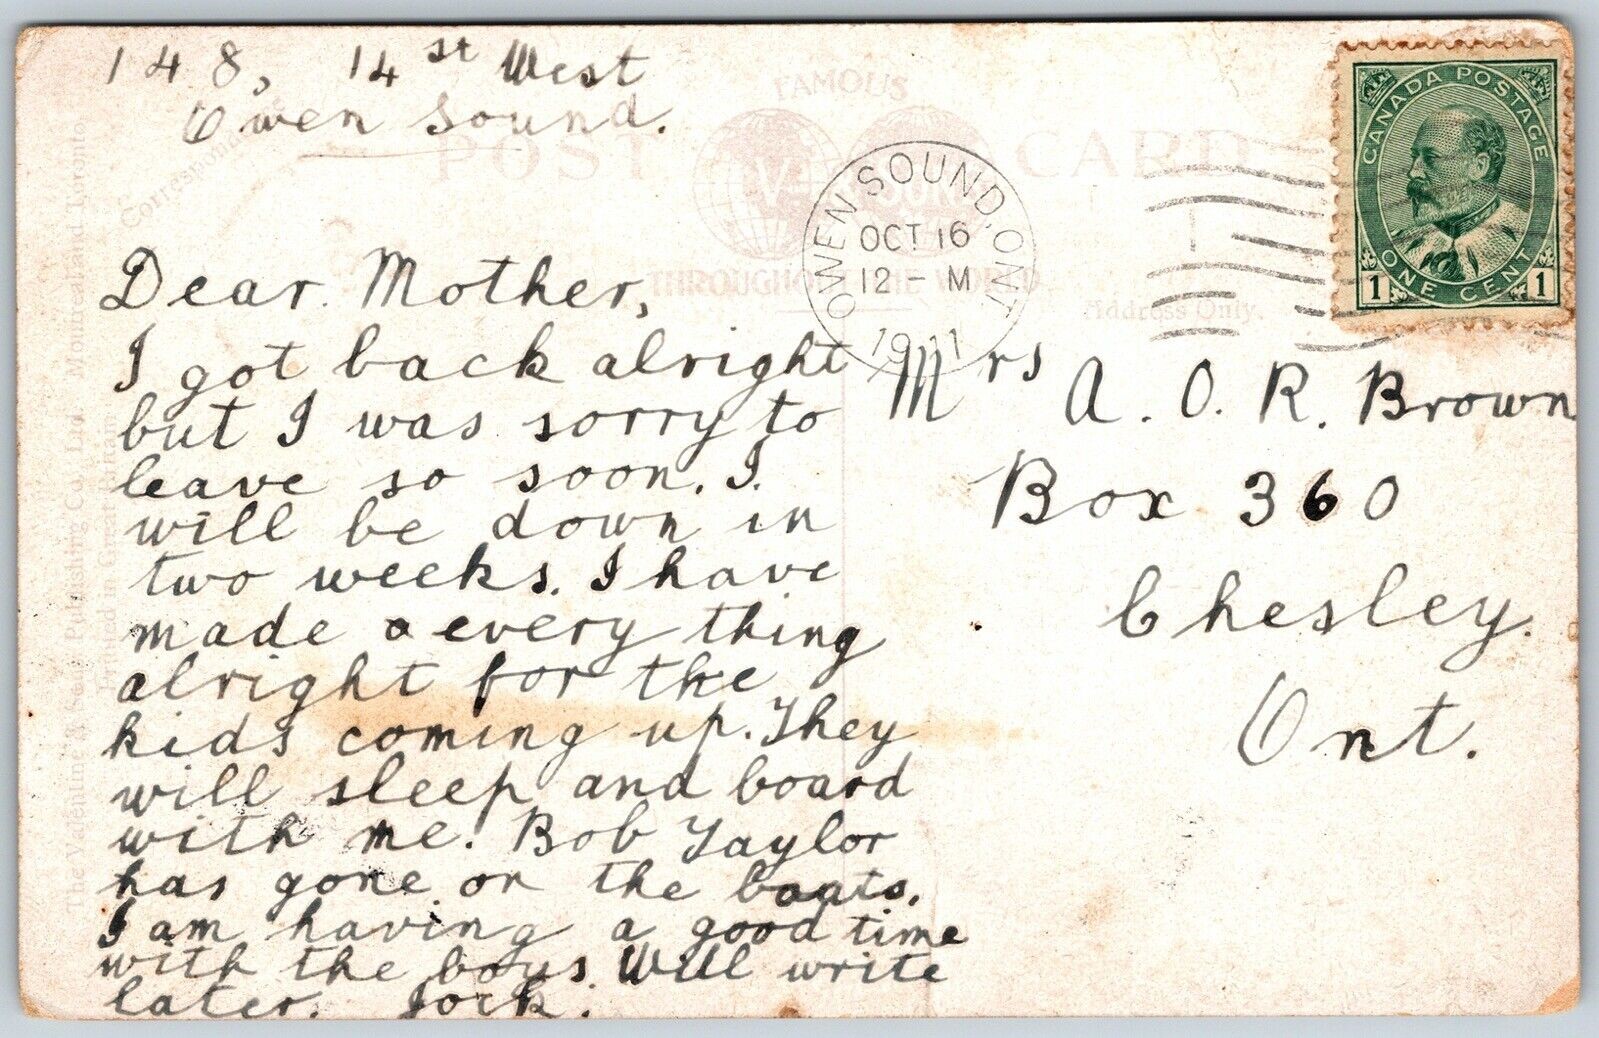 148, 14 st West
Owen Sound.
FAMOUS
POST CARD
THROUGHOUT THE WORLD
Correspond
Address Only.
OWEN SOUND, ONT.
OCT 16
12 - M
1911
CANADA POSTAGE
1 ONE CENT 1
Dear Mother,
I got back alright
but I was sorry to
leave so soon. I.
will be down in
two weeks. I have
made a every thing
alright for the
kids coming up. They
will sleep and board
with me. Bob Taylor
has gone on the boats.
I am having a good time
with the boys. Will write
later. Jock.
Mrs A. O. R. Brown
Box 360
Chesley.
Ont.
The Valentine & Sons Publishing Co., Ltd. Montreal and Toronto
Printed in Great Britain.